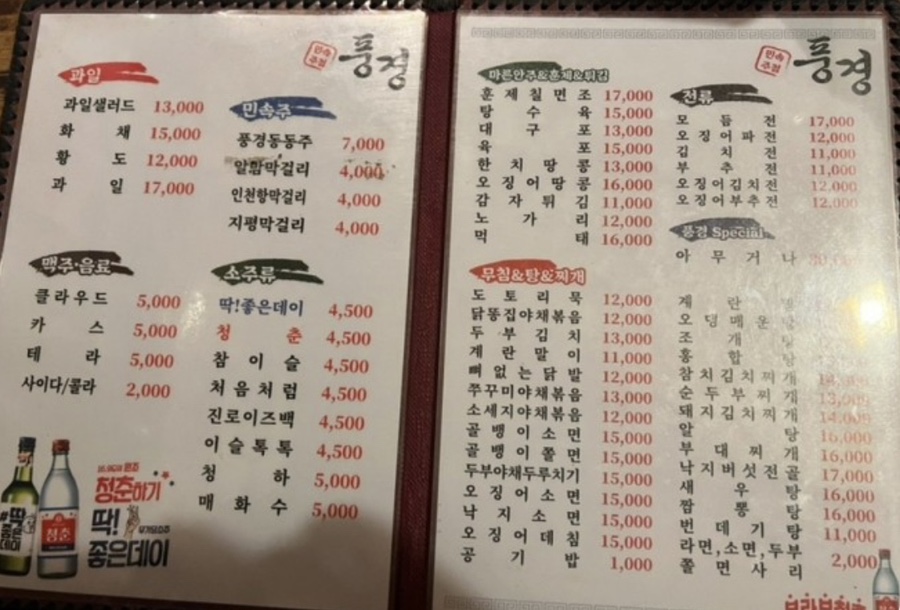 민속
주점
풍경
과일
과일샐러드 13,000
화채 15,000
황도 12,000
과일 17,000
민속주
풍경동동주 7,000
알밤막걸리 4,000
인천항막걸리 4,000
지평막걸리 4,000
맥주·음료
클라우드 5,000
카스 5,000
테라 5,000
사이다/콜라 2,000
소주류
딱!좋은데이 4,500
청춘 4,500
참이슬 4,500
처음처럼 4,500
진로이즈백 4,500
이슬톡톡 4,500
청하 5,000
매화수 5,000
청춘
청춘하기
딱!
좋은데이
민속
주점
풍경
마른안주&훈제&튀김
훈제칠면조 17,000
탕수육 15,000
대구포 13,000
육포 15,000
한치땅콩 13,000
오징어땅콩 16,000
감자튀김 11,000
노가리 12,000
먹태 16,000
전류
모듬전 17,000
오징어파전 12,000
김치전 11,000
부추전 11,000
오징어김치전 12,000
오징어부추전 12,000
풍경 Special
아무거나
무침&탕&찌개
도토리묵 12,000
닭똥집야채볶음 12,000
두부김치 13,000
계란말이 11,000
뼈없는닭발 12,000
쭈꾸미야채볶음 13,000
소세지야채볶음 12,000
골뱅이소면 15,000
골뱅이쫄면 15,000
두부야채두루치기 15,000
오징어소면 15,000
낙지소면 15,000
오징어데침 15,000
공기밥 1,000
계란
오뎅매운탕
조개탕
홍합탕
참치김치찌개 14,000
순두부찌개 13,000
돼지김치찌개 14,000
알탕 16,000
부대찌개 16,000
낙지버섯전골 17,000
새우탕 16,000
짬뽕탕 16,000
번데기탕 11,000
라면,소면,두부 2,000
쫄면사리